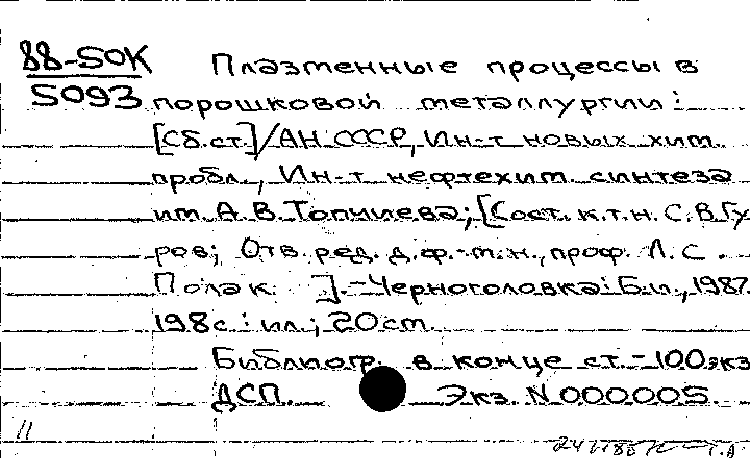 88-5ОК Плазменные процессы в
5093 порошковой металлургии:
[Сб.ст.]/АН СССР, Ин-т новых хим.
пробл., Ин-т нефтехим. синтеза
им. А.В. Топчиева; [Сост. к.т.н. С.В. Гу
ров; Отв. ред. д.ф.-м.н., проф. Л.С.
Полак ].-Черноголовка: Б.и., 1987.
198с.: ил.; 20см.
Библиогр. в конце ст.-100экз
ДСП. Экз. N 000005.
11